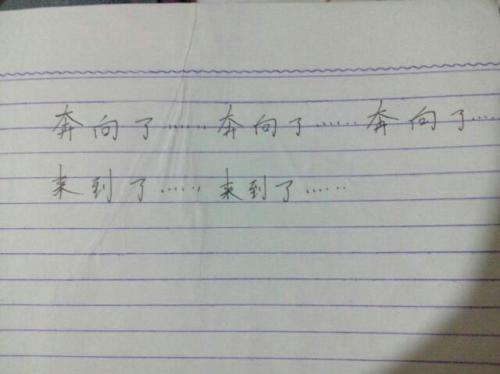 奔向了……奔向了……奔向了……
来到了……来到了……